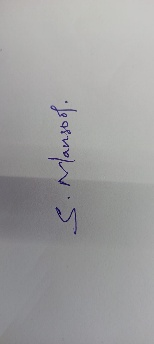 S. Mansoof.